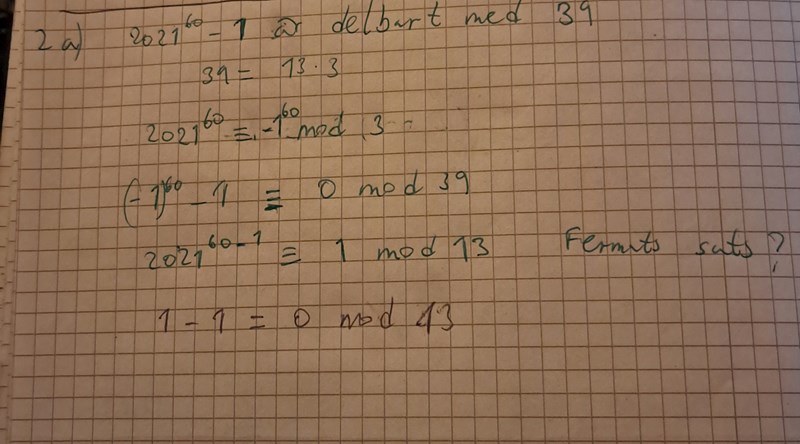 2 a) 2021^60 - 1 är delbart med 39
39 = 13 · 3
2021^60 ≡ -1^60 mod 3
(-1)^60 - 1 ≡ 0 mod 39
2021^60-1 ≡ 1 mod 13 Fermats sats?
1 - 1 = 0 mod 13